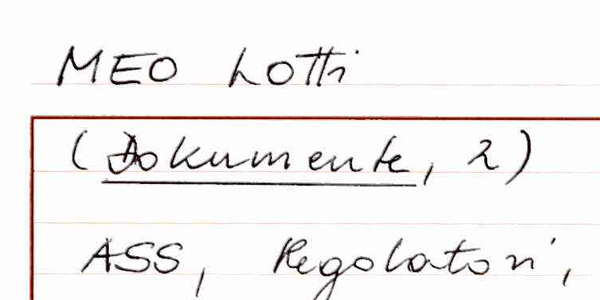 MEO Lotti
(Dokumente, 2)
ASS, Regolatori,